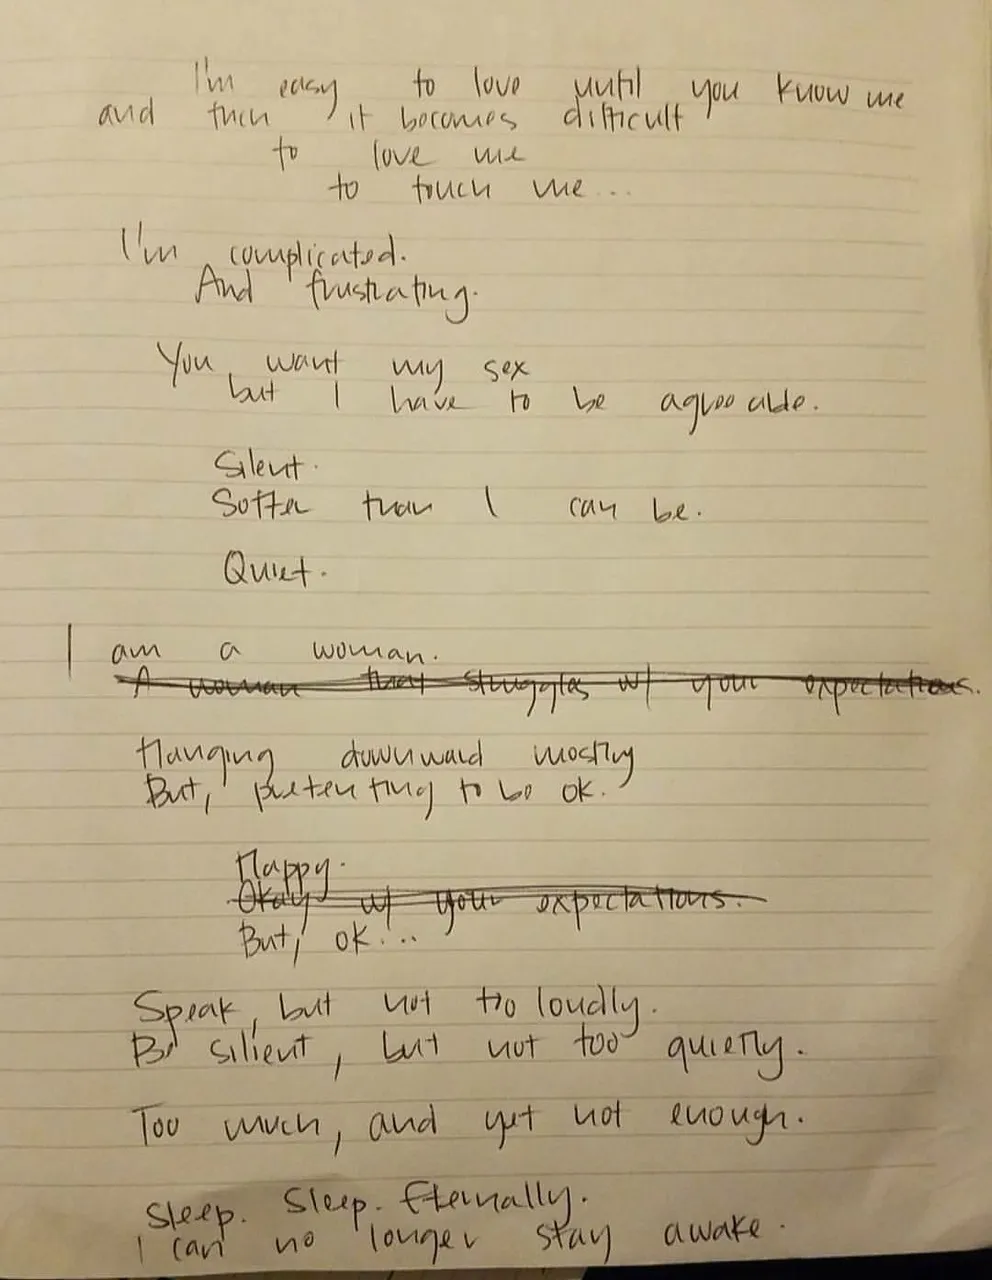 I'm easy to love until you know me
and then it becomes difficult
to love me
to touch me...
I'm complicated.
And frustrating.
You want my sex
but I have to be agreeable.
Silent.
Softer than I can be.
Quiet.
I am a woman.
A woman that struggles w/ your expectations.
Hanging downward mostly
But, pretending to be ok.
Happy.
Okay w/ your expectations.
But, ok...
Speak, but not too loudly.
Be silient, but not too quietly.
Too much, and yet not enough.
Sleep. Sleep. Eternally.
I can no longer stay awake.